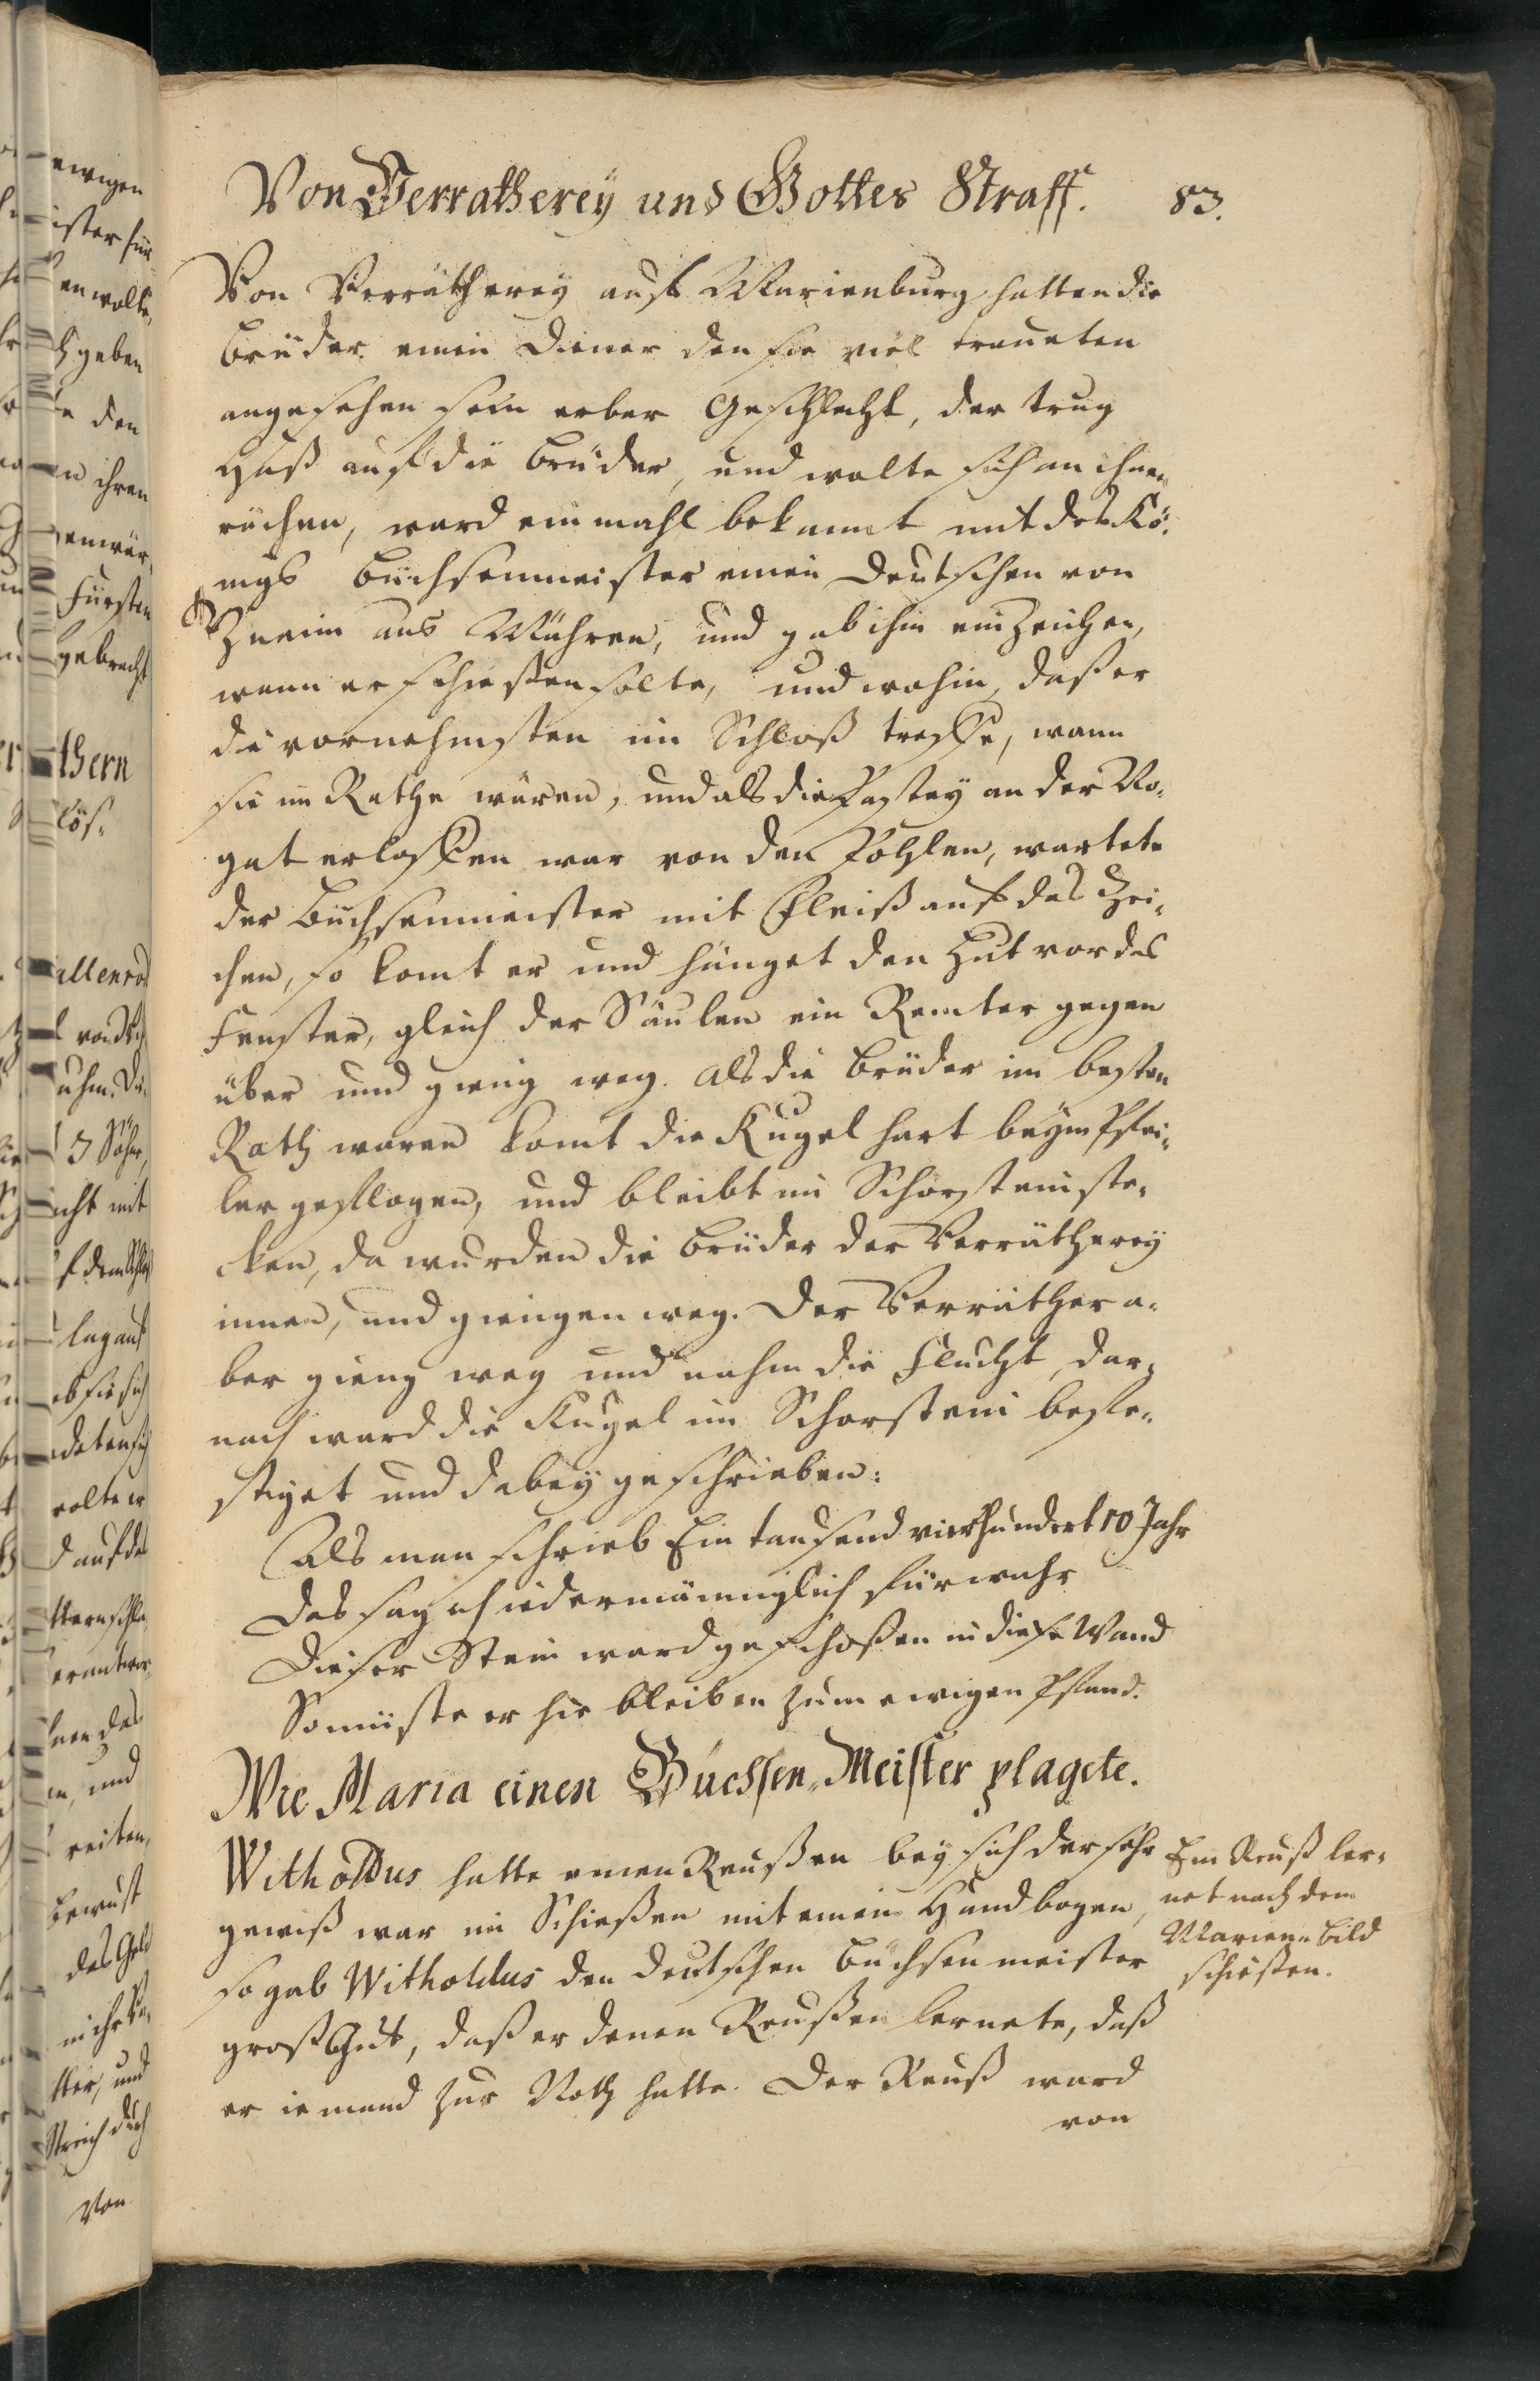 Von Verratherey und Gottes Straff. 83.
Von Verrätherey auf Marienburg hatten die
Brüder einen Diener den sie viel traueten
angesehen sein erber Geschlecht, der trug
Haß auf die Brüder, und wolte sich an ihnen
rächen, ward einmahl bekannt mit des Kö-
nigs Büchsenmeister einen Deutschen von
Znaim aus Mähren, und gab ihm ein Zeichen,
wenn er schießen solte, und wohin, daß er
die vornehmsten im Schloß treffe, wann
sie im Rathe wären, und als die Pastey an der No-
gat erlassen war von den Pohlen, wartete
der Büchsenmeister mit Fleiß auf das Zei-
chen, so komt er und hänget den Hut vor das
Fenster, gleich der Säulen ein Remter gegen
über und gieng weg. Als die Brüder im besten
Rath waren komt die Kugel hart beym Pfei-
ler geflogen, und bleibt im Schorstein ste-
cken, da wurden die Brüder der Verrätherey
innen, und giengen weg. Der Verräther a-
ber gieng weg und nahm die Flucht, dar-
nach ward die Kugel im Schorstein befe-
stiget und dabey geschrieben:
Als man schrieb Ein tausend vierhundert 10 Jahr
Das sag ich iedermänniglich fürwahr
Dieser Stein ward geschoßen in diese Wand
So müste er hie bleiben zum ewigen Pfand.
Wie Maria einen Büchsen-Meister plagete.
Witholdus hatte einen Reußen bey sich der sehr
gewiß war im Schießen mit einem Handbogen,
so gab Witholdus den deutschen Büchsenmeister
groß Gut, daß er denen Reußen lernete, daß
er iemand zur Noth hatte. Der Reuß ward
von
Ein Reuß ler-
net nach dem
Marien-Bild
schießen.
ewigen
en wolte,
geben
den
ihren
Fürsten
gebracht
thern
3 Söhne,
mit
lag auf
reiten,
bewust
des Geld
und
Von